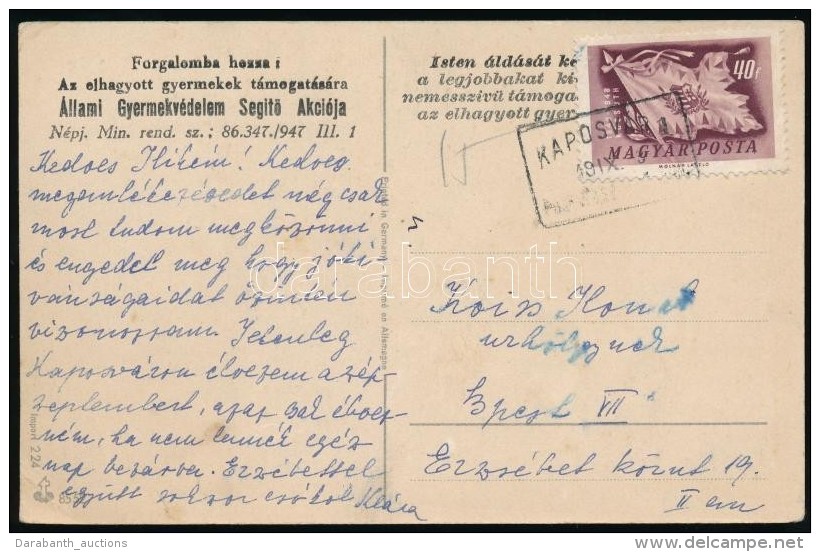 Forgalomba hozza:
Az elhagyott gyermekek támogatására
Állami Gyermekvédelem Segitő Akciója
Népj. Min. rend. sz.; 86.347./947 III. 1
Kedves Ilikém! Kedves
megemlékezésedet még csak
most tudom megköszönni
és engedd meg hogy jóki-
vánságaidat őszintén
viszonozzam. Jelenleg
Kaposváron élvezem a szép
szeptembert, azaz csak élvez-
ném, ha nem lennék egész
nap bezárva. Erzsébettel
együtt sokszor csókol Klára
Import 224
Printed in Germany - Imprimé en Allemagne
Isten áldását ké
a legjobbakat ki
nemesszivü támoga
az elhagyott gyer
40f
MAGYAR POSTA
MOLNÁR LÁSZLÓ
KAPOSVÁR 1
Ilona
úrhölgynek
Bpest VII
Erzsébet körut 19.
II em
darabanth
Darabanth_auctions
delcampe.net